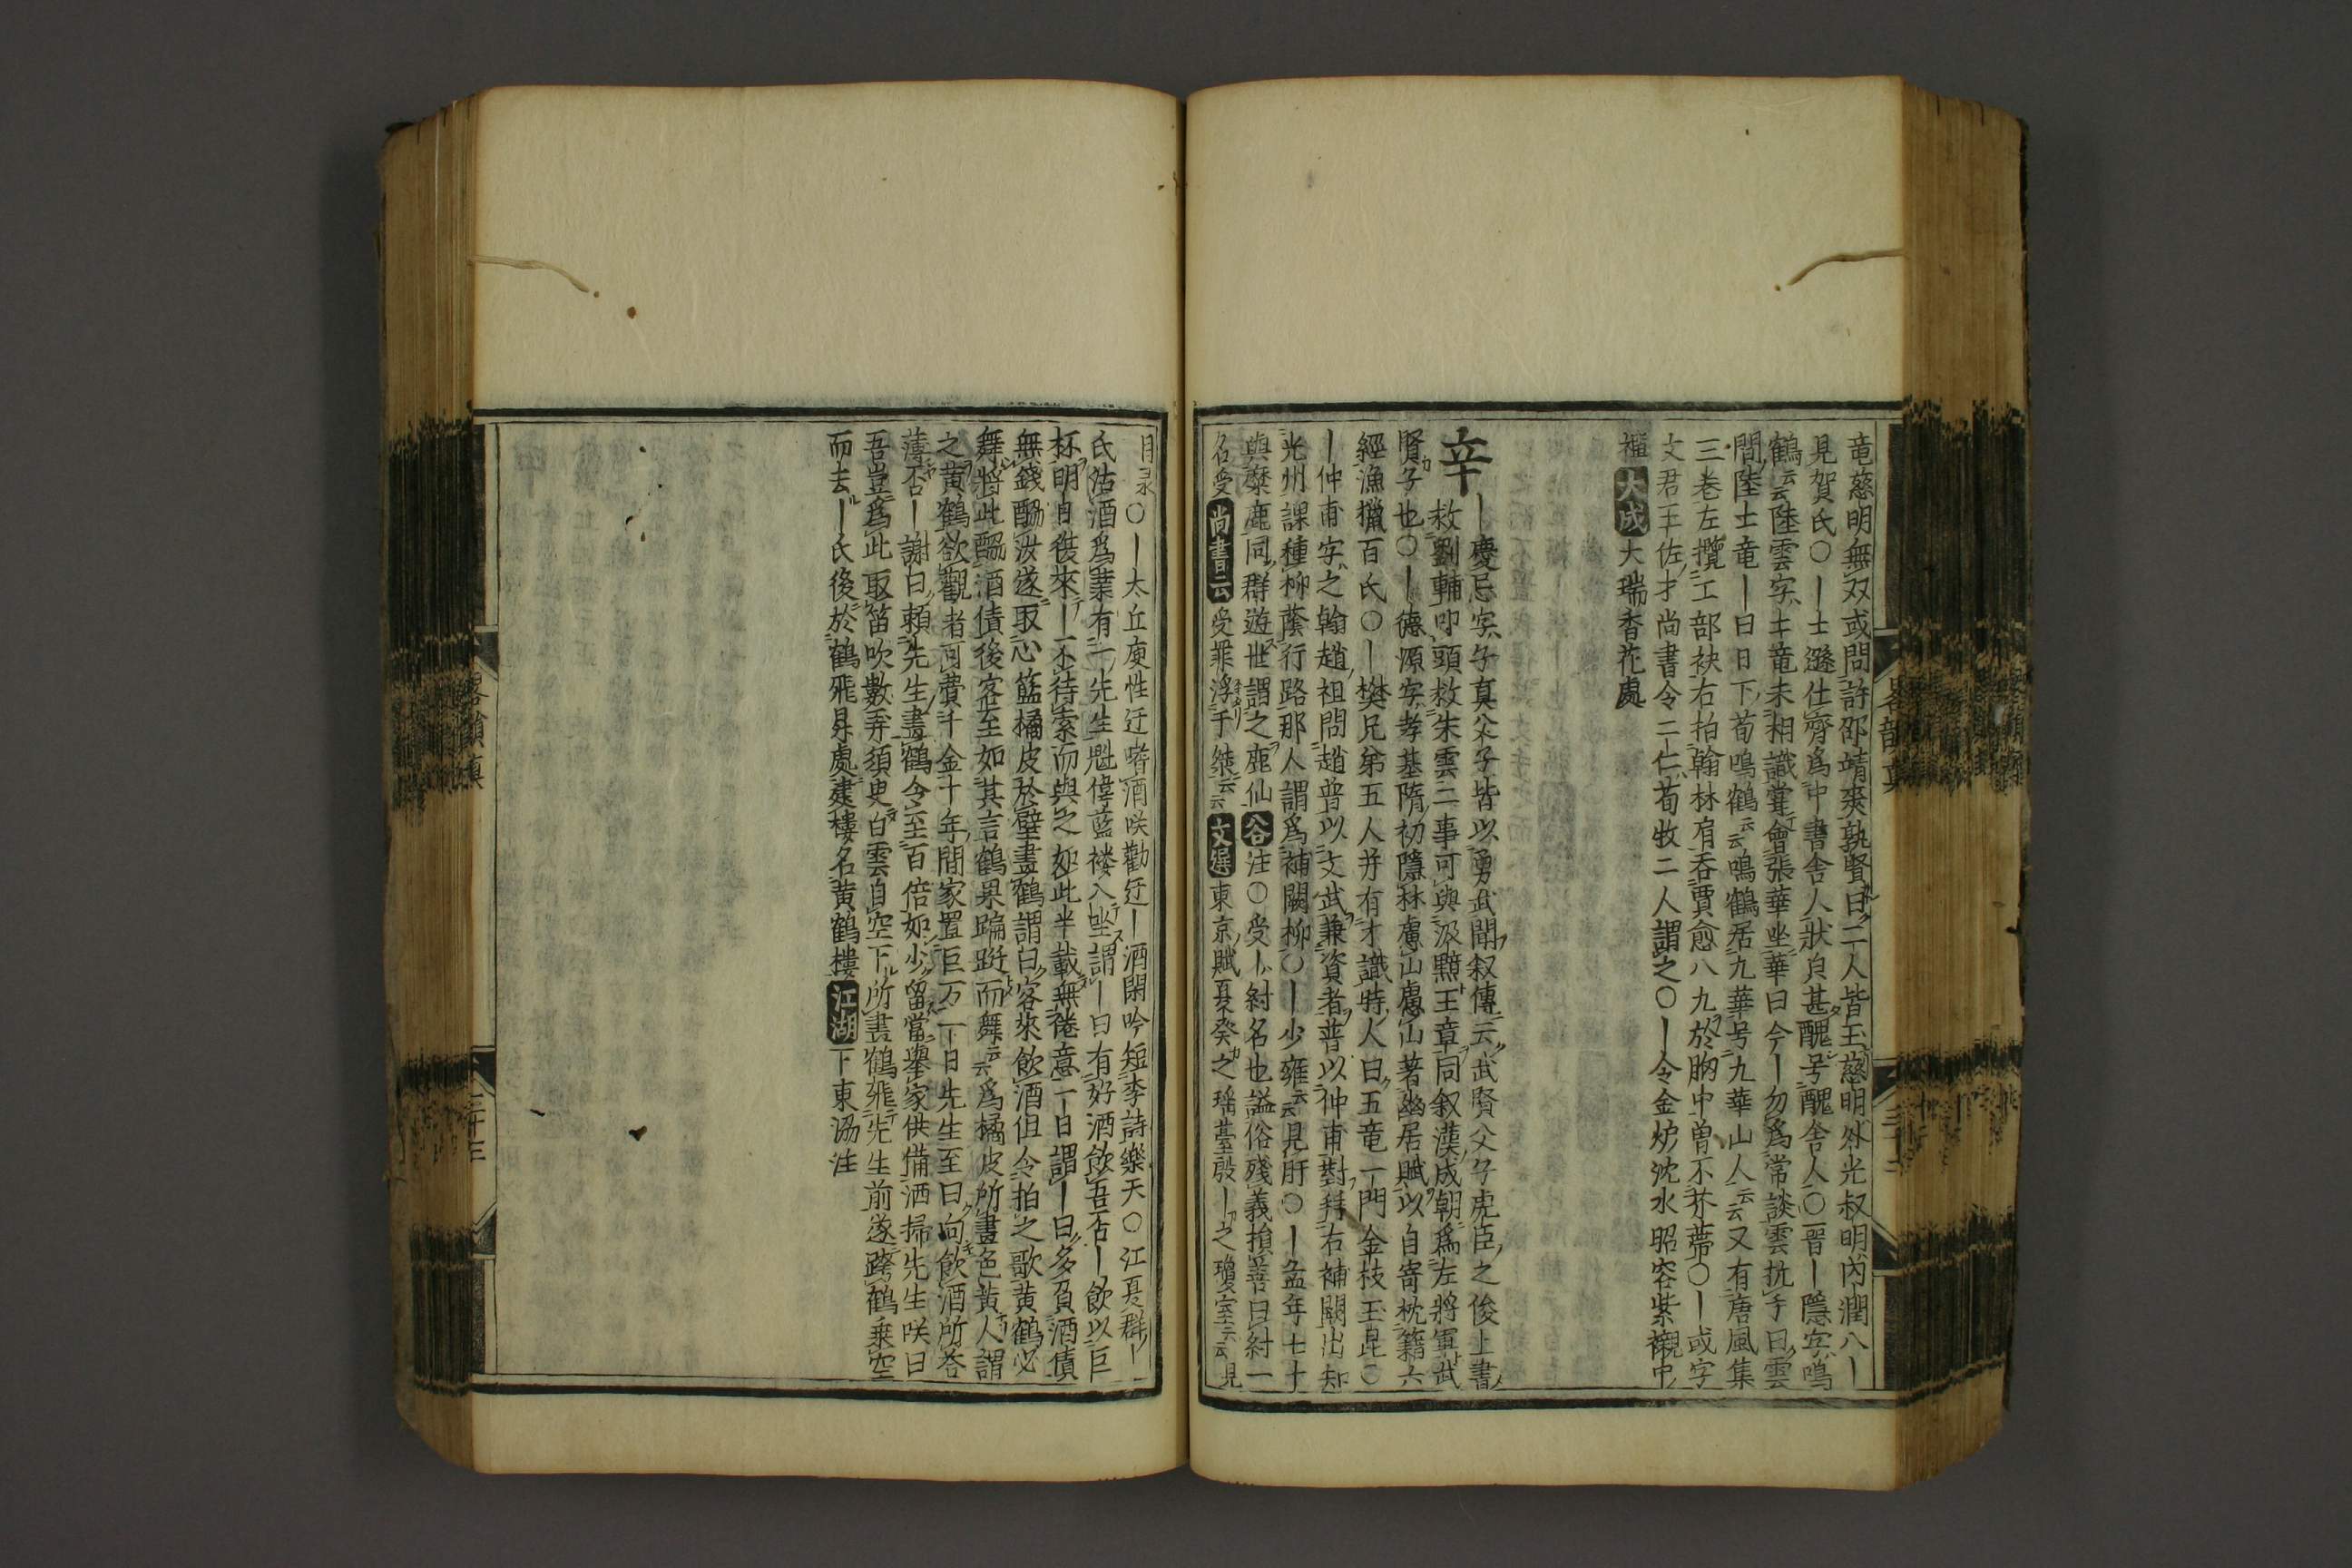 竜慈明無双或問許邵靖爽孰賢曰二人皆玉慈明外光叔明内潤八｜
見賀氏○｜士遜仕齊爲中書舎人狀皃甚醜号醜舎人○晋｜隱字鳴
鶴云云陸雲字士竜未相識甞會張華坐華曰今｜勿爲常談雲抗手曰雲
間陸士竜｜曰日下荀鳴鶴云云鳴鶴居九華号九華山人云云又有唐風集
三巻左攬工部袂右拍翰林肩呑賈愈八九於胸中曽不芥蔕○｜或字
文君王佐才尚書令二仁荀攸二人謂之○｜令金炉沈水昭容紫襯中
襤大成大瑞香花處
辛｜慶忌字子真父子皆以勇武聞叙傳云武賢父子虎臣之俊上書
救劉輔叩頭救朱雲二事可與汲黯王章同叙漢成朝爲左將軍武
賢子也○｜德源字孝基隋初隱林慮山慮山著幽居賦以自寄枕籍六
經漁獵百氏○｜樊兄第五人并有才識時人曰五竜一門金枝玉昆○
｜仲甫字之翰趙祖問趙普以文武兼資者普以仲甫對拜右補闕出知
光州課種柳蔭行路那人謂爲補闕柳○｜少雍云云見肝○｜孟年七十
與麋鹿同群遊世謂之鹿仙谷注○受｜紂名也謚俗殘義損善曰紂一
名受尚書云受罪浮于桀云云文選東京賦夏癸之瑶䑓殷｜之瓊室云云見
目录○｜太丘庾性迂嗜酒咲勸迂｜酒閑吟短李詩樂天○江夏群｜
氏沽酒爲業有一先生魁偉藍褸入坐謂｜曰有好酒飲吾否｜飲以巨
杯明日復來｜不待索而與之如此半載無倦意一日謂｜曰多負酒債
無錢酧汝遂取心籃橘皮於壁畫鶴謂曰客來飲酒但令拍之歌黄鶴必
舞將此酧酒債後客至如其言鶴果蹁蹮而舞云云爲橘皮所畫色黄人謂
之黄鶴欲觀者可費千金十年間家置巨万一日先生至曰向飲酒所荅
薄否｜謝曰頼先生畫鶴今至百倍如少留當舉家供備洒掃先生咲曰
吾豈爲此取笛吹數弄須史白雲自空下所畫鶴飛先生前遂跨鶴乗空
而去｜氏後於鶴飛昇處建樓名黄鶴樓江湖下東湯注